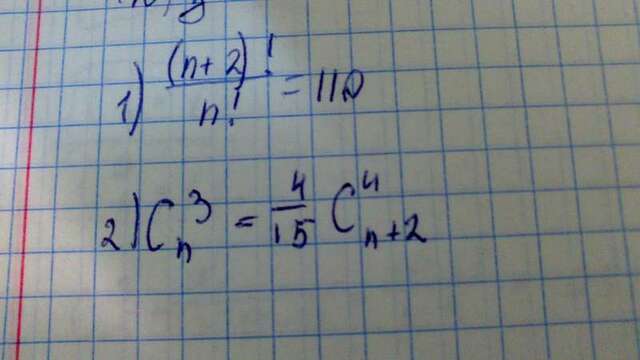 1) (n+2)! / n! = 110
2) C_n^3 = 4/15 C_{n+2}^4